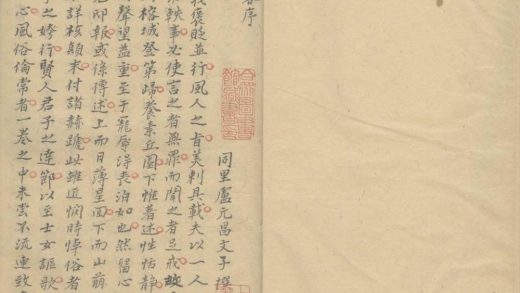 序
同里盧元昌文子撰
褒貶並行風人之旨美刺具載夫以一人
軼事必使言之者無罪而聞之者足戒故
榕城登第歸養素丘園下帷著述性恬靜
聲望益重至于寵辱淂喪泊如也然留心
邸報或條傳述上而日薄星回下而山崩
詳核顛末付諸赫蹏此雖道憫時悼俗者
之行賢人君子之達節以至士女謳歌
心風俗倫常者一卷之中未嘗不流連致